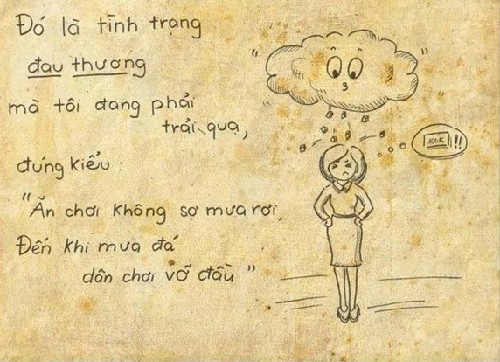 Đó là tình trạng
đau thương
mà tôi đang phải
trải qua,
đúng kiểu
"Ăn chơi không sợ mưa rơi,
Đến khi mưa đá
dân chơi vỡ đầu"
100K !!